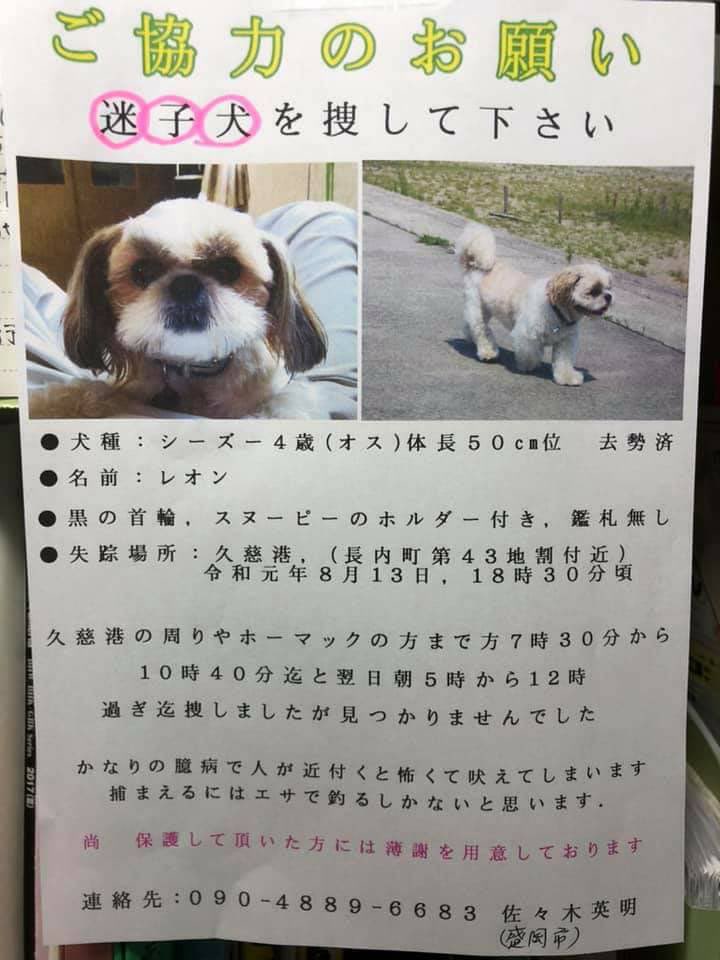 ご協力のお願い
迷子犬を捜して下さい
● 犬種：シーズー４歳(オス)体長５０cm位　去勢済
● 名前：レオン
● 黒の首輪，スヌーピーのホルダー付き，鑑札無し
● 失踪場所：久慈港，（長内町第４３地割付近）
令和元年８月１３日，１８時３０分頃
久慈港の周りやホーマックの方まで方７時３０分から
１０時４０分迄と翌日朝５時から１２時
過ぎ迄捜しましたが見つかりませんでした
かなりの臆病で人が近付くと怖くて吠えてしまいます
捕まえるにはエサで釣るしかないと思います．
尚　保護して頂いた方には薄謝を用意しております
連絡先：０９０-４８８９-６６８３　佐々木英明
(盛岡市)